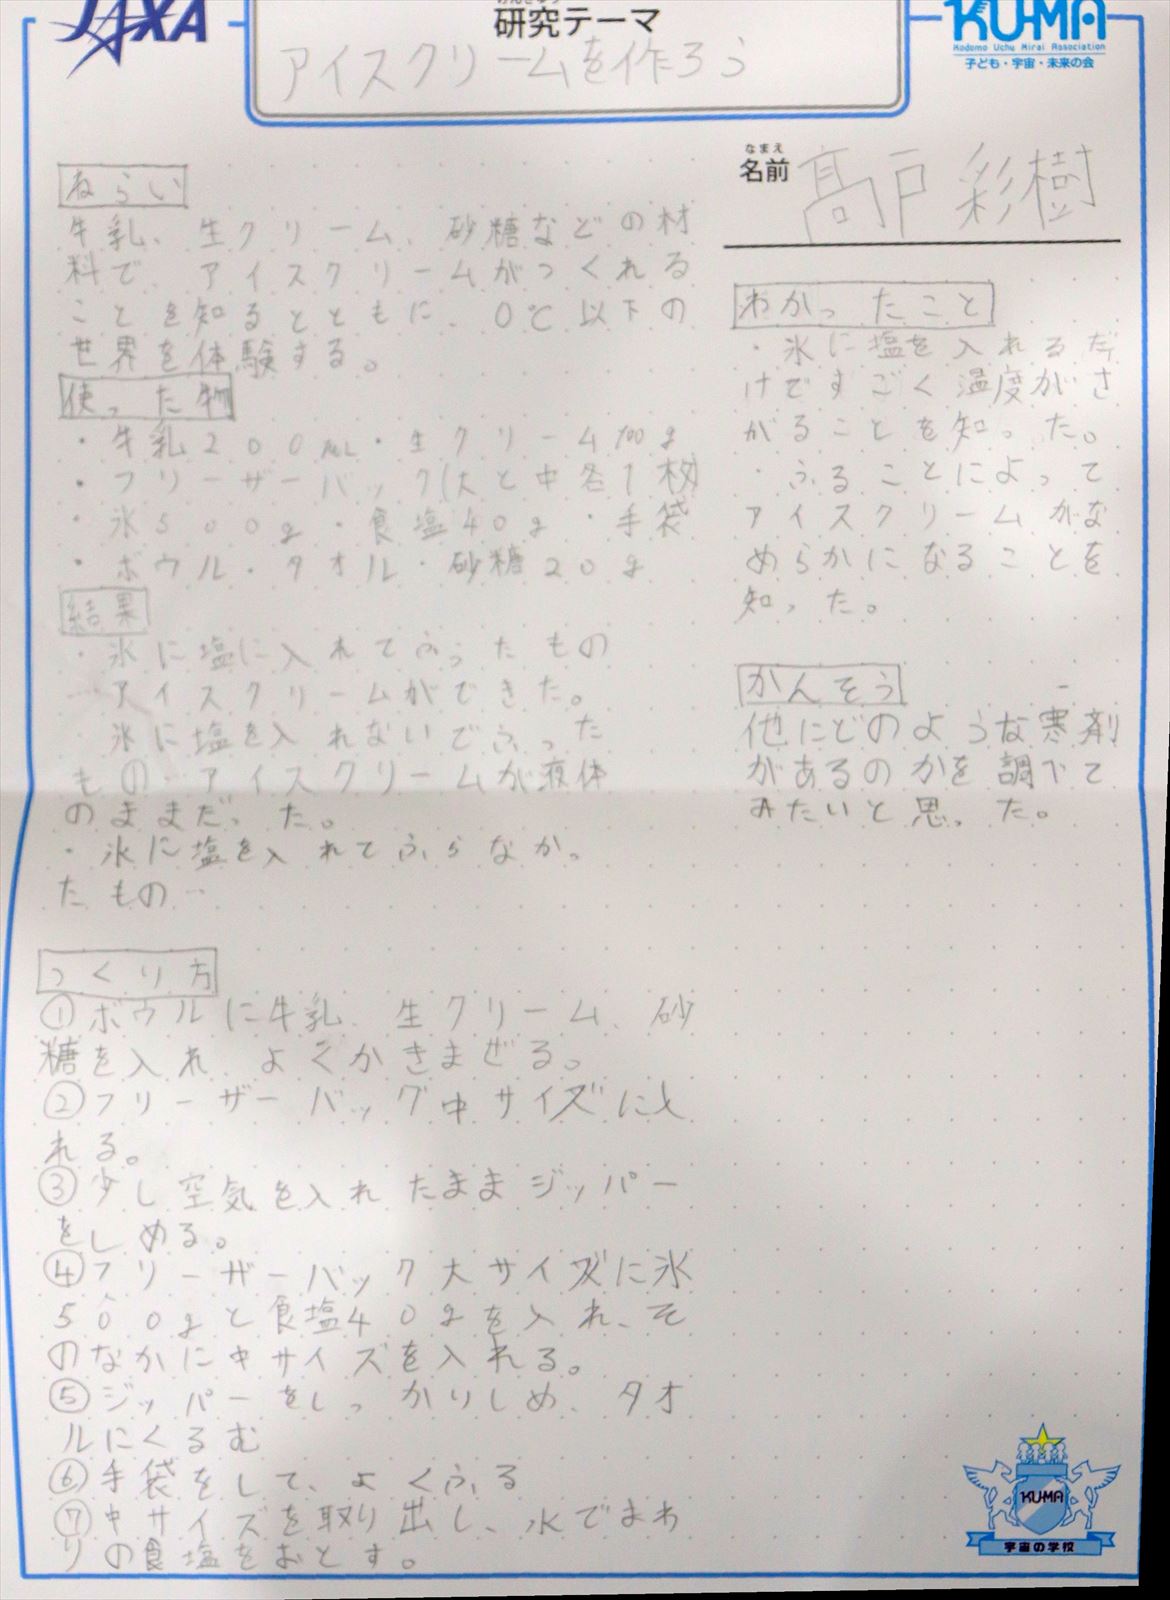 JAXA
けんきゅう
研究テーマ
アイスクリームを作ろう
KU-MA
Kodomo Uchu Mirai Association
子ども・宇宙・未来の会
なまえ
名前 髙戸彩樹
ねらい
牛乳、生クリーム、砂糖などの材
料で、アイスクリームがつくれる
ことを知るとともに、0℃以下の
世界を体験する。
使った物
・牛乳200mL・生クリーム100g
・フリーザーバック(大と中各1枚)
・氷500g・食塩40g・手袋
・ボウル・タオル・砂糖20g
結果
・氷に塩に入れてふったもの
…アイスクリームができた。
・氷に塩を入れないでふった
もの…アイスクリームが液体
のままだった。
・氷に塩を入れてふらなかっ
たもの…
つくり方
①ボウルに牛乳、生クリーム、砂
糖を入れ、よくかきまぜる。
②フリーザーバッグ中サイズに入
れる。
③少し空気を入れたままジッパー
をしめる。
④フリーザーバック大サイズに氷
500gと食塩40gを入れ、そ
のなかに中サイズを入れる。
⑤ジッパーをしっかりしめ、タオ
ルにくるむ
⑥手袋をして、よくふる
⑦中サイズを取り出し、水でまわ
りの食塩をおとす。
わかったこと
・氷に塩を入れるだ
けですごく温度がさ
がることを知った。
・ふることによって
アイスクリームがな
めらかになることを
知った。
かんそう
他にどのような寒剤
があるのかを調べて
みたいと思った。
KUMA
宇宙の学校